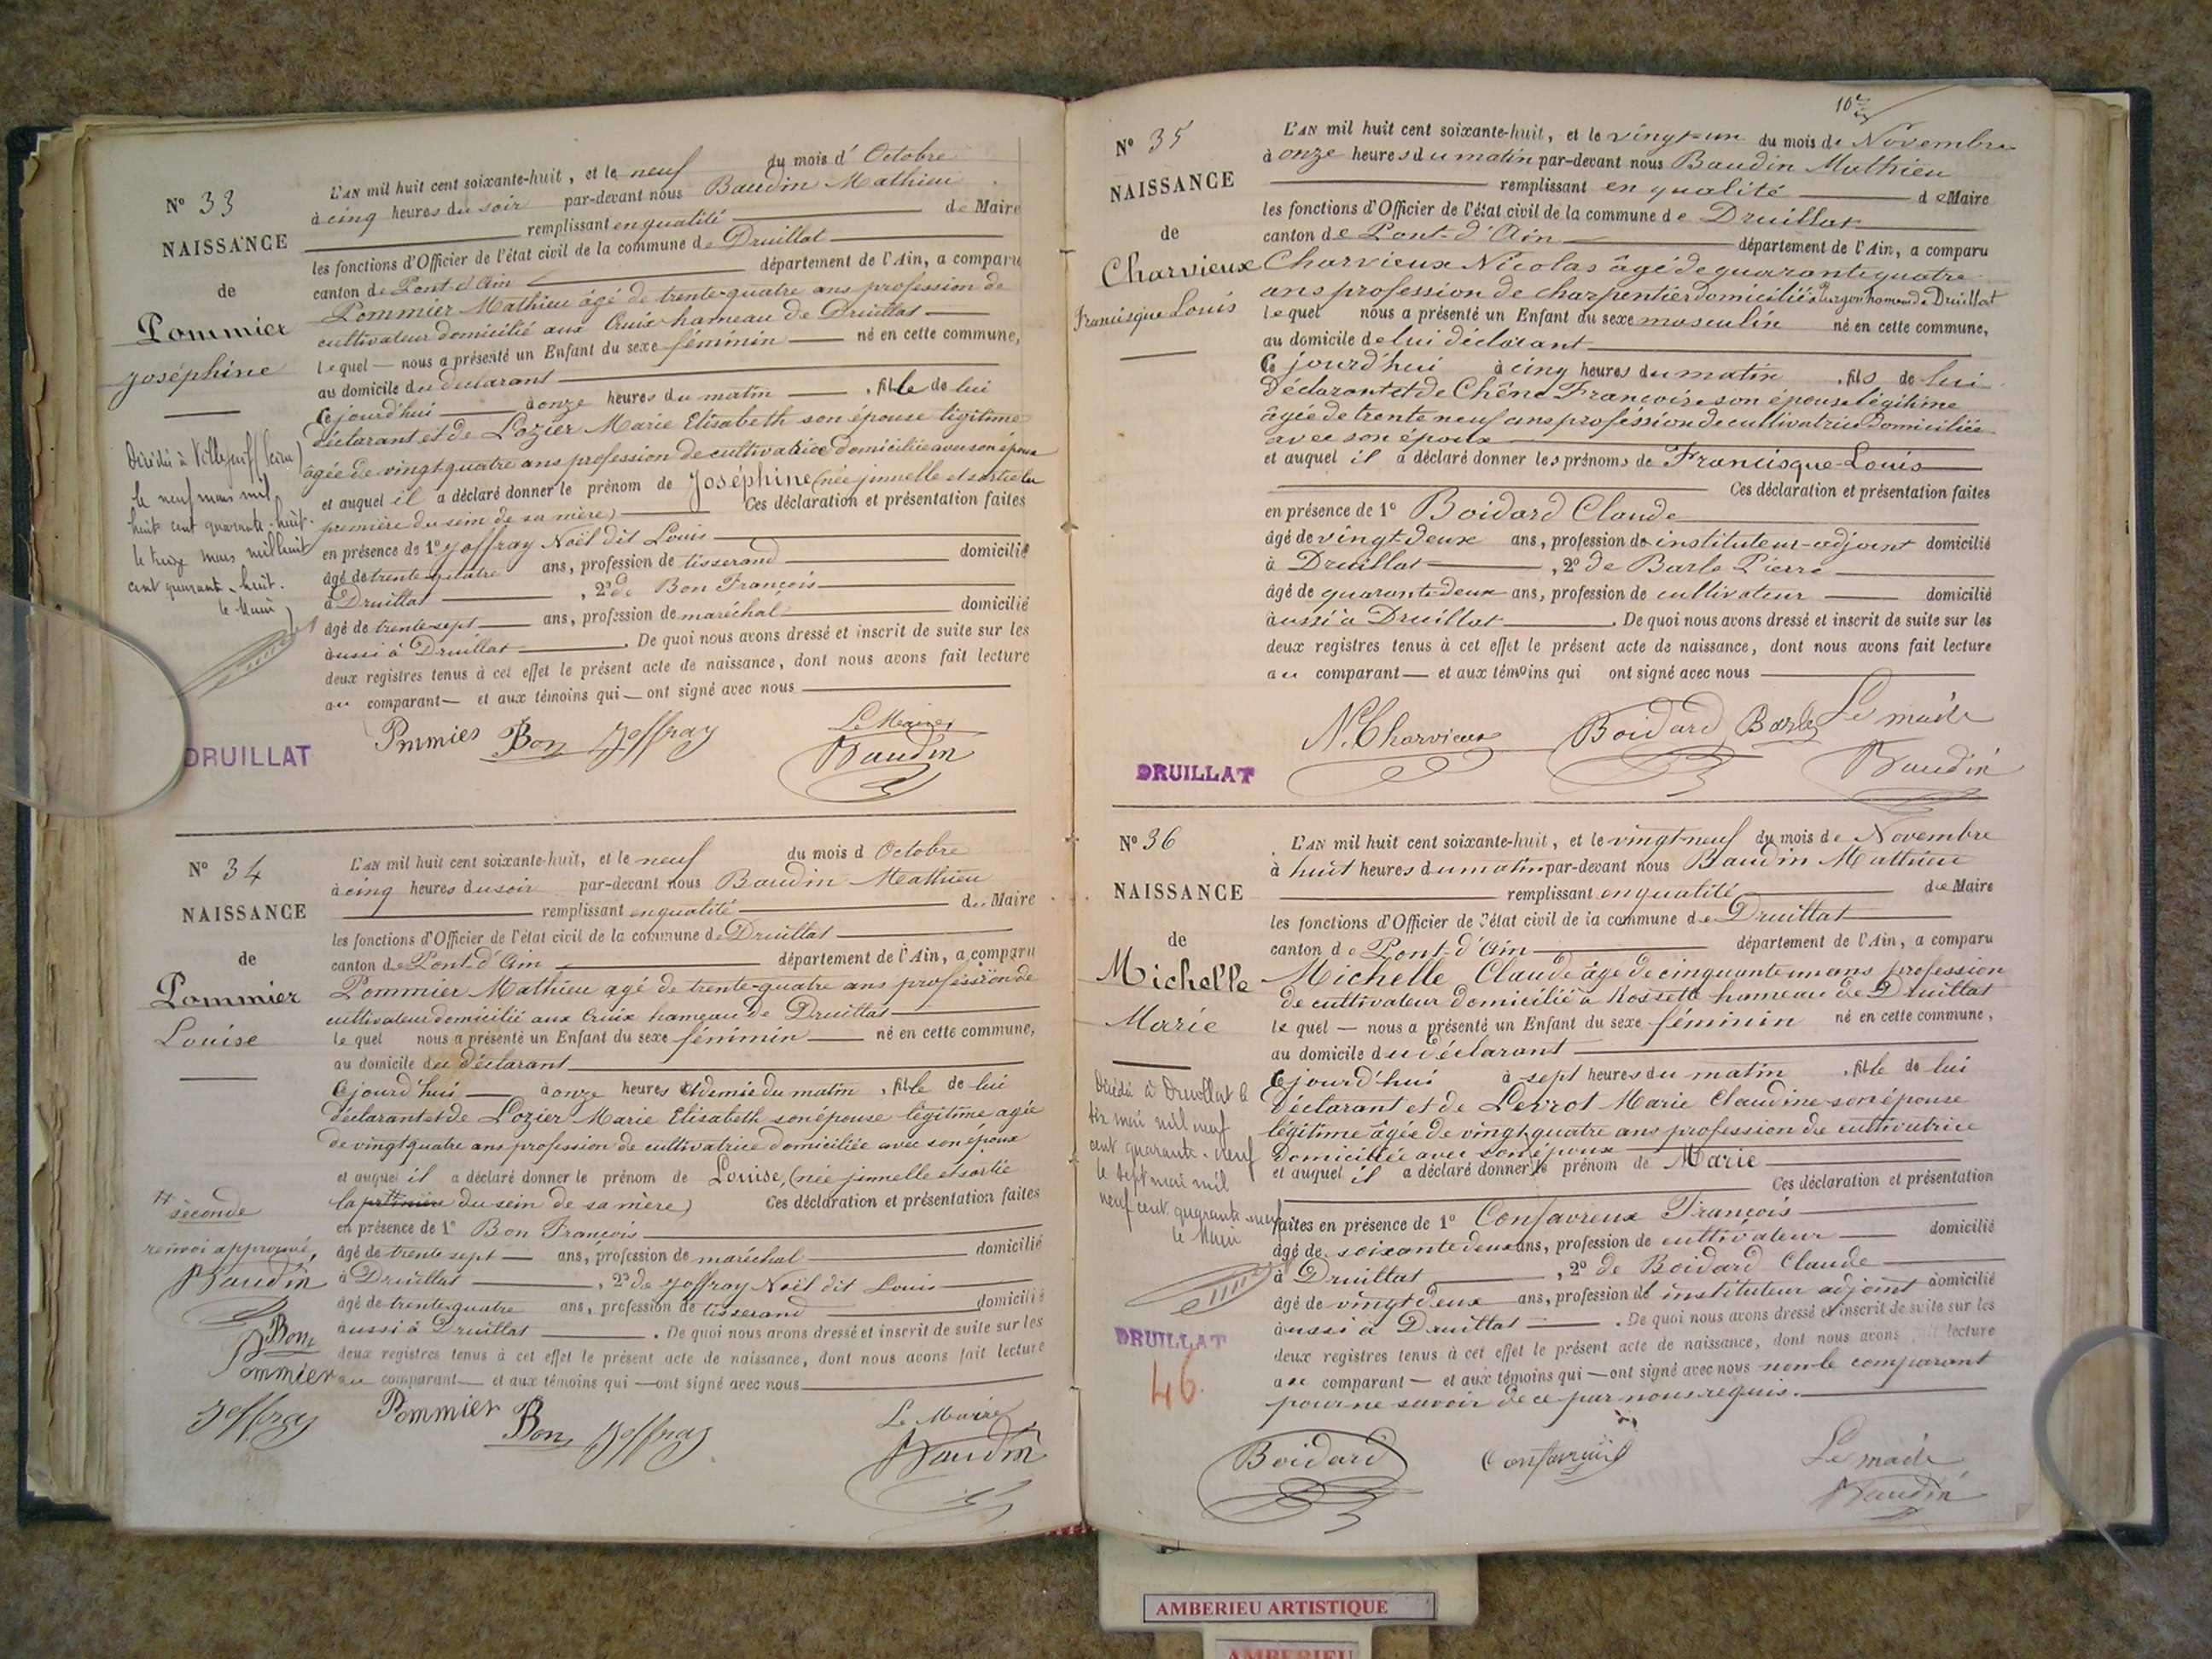 N° 33
NAISSANCE
de
Pommier
Joséphine
Décédée à Villejuif (Seine)
le neuf mars mil
huit cent quarante-huit.
le treize mars mil huit
cent quarante-huit.
le Maire
DRUILLAT
L'AN mil huit cent soixante-huit, et le neuf du mois d' Octobre
à cinq heures du soir par-devant nous Baudin Mathieu
remplissant en qualité de Maire
les fonctions d'Officier de l'état civil de la commune de Druillat
canton de Pont-d'Ain département de l'Ain, a comparu
Pommier Mathieu âgé de trente-quatre ans profession de
cultivateur domicilié aux Cruix hameau de Druillat
lequel nous a présenté un Enfant du sexe féminin né en cette commune,
au domicile du déclarant
Cejourd'hui à onze heures du matin , fille de lui
déclarant et de Lozier Marie Elisabeth son épouse légitime
âgée de vingt quatre ans profession de cultivatrice domiciliée avec son époux
et auquel il a déclaré donner le prénom de Joséphine (née jumelle et sortie la
première du sein de sa mère) Ces déclaration et présentation faites
en présence de 1° Joffray Noël dit Louis
âgé de trente-quatre ans, profession de tisserand domicilié
à Druillat , 2° de Bon François
âgé de trente-sept ans, profession de maréchal domicilié
aussi à Druillat . De quoi nous avons dressé et inscrit de suite sur les
deux registres tenus à cet effet le présent acte de naissance, dont nous avons fait lecture
au comparant et aux témoins qui ont signé avec nous
Pommier Bon Joffray Le Maire
Baudin
N° 34
NAISSANCE
de
Pommier
Louise
seconde
renvoi approuvé,
Baudin
Bon
Pommier
Joffray
L'AN mil huit cent soixante-huit, et le neuf du mois d Octobre
à cinq heures du soir par-devant nous Baudin Mathieu
remplissant en qualité de Maire
les fonctions d'Officier de l'état civil de la commune de Druillat
canton de Pont-d'Ain département de l'Ain, a comparu
Pommier Mathieu agé de trente-quatre ans profession de
cultivateur domicilié aux Cruix hameau de Druillat
lequel nous a présenté un Enfant du sexe féminin né en cette commune,
au domicile du déclarant
Cejourd'hui à onze heures et demie du matin , fille de lui
déclarant et de Lozier Marie Elisabeth son épouse légitime agée
de vingt quatre ans profession de cultivatrice domiciliée avec son époux
et auquel il a déclaré donner le prénom de Louise, (née jumelle et sortie
la première du sein de sa mère) Ces déclaration et présentation faites
en présence de 1° Bon François
âgé de trente sept ans, profession de maréchal domicilié
à Druillat , 2° de Joffray Noël dit Louis
âgé de trente-quatre ans, profession de tisserand domicilié
aussi à Druillat . De quoi nous avons dressé et inscrit de suite sur les
deux registres tenus à cet effet le présent acte de naissance, dont nous avons fait lecture
au comparant et aux témoins qui ont signé avec nous
Pommier Bon Joffray Le Maire
Baudin
10e
N° 35
NAISSANCE
de
Charvieux
Francisque Louis
DRUILLAT
L'AN mil huit cent soixante-huit, et le vingt-un du mois de Novembre
à onze heures du matin par-devant nous Baudin Mathieu
remplissant en qualité de Maire
les fonctions d'Officier de l'état civil de la commune de Druillat
canton de Pont-d'Ain département de l'Ain, a comparu
Charvieux Nicolas âgé de quarante quatre
ans profession de charpentier domicilié à hameau de Druillat
lequel nous a présenté un Enfant du sexe masculin né en cette commune,
au domicile de lui déclarant
Ce jourd'hui à cinq heures du matin , fils de lui
Déclarant et de Chêne Françoise son épouse légitime
âgée de trente neuf ans profession de cultivatrice domiciliée
avec son époux
et auquel il a déclaré donner les prénoms de Francisque-Louis
Ces déclaration et présentation faites
en présence de 1° Boidard Claude
âgé de vingt-deux ans, profession de instituteur-adjoint domicilié
à Druillat , 2° de Barle Pierre
âgé de quarante-deux ans, profession de cultivateur domicilié
aussi à Druillat . De quoi nous avons dressé et inscrit de suite sur les
deux registres tenus à cet effet le présent acte de naissance, dont nous avons fait lecture
au comparant et aux témoins qui ont signé avec nous
N. Charvieux Boidard Barle Le maire
Baudin
N° 36
NAISSANCE
de
Michelle
Marie
Décédée à Druillat le
six mai mil neuf
cent quarante-neuf
le sept mai mil
neuf cent quarante-neuf
le Maire
DRUILLAT
46.
L'AN mil huit cent soixante-huit, et le vingt-neuf du mois de Novembre
à huit heures du matin par-devant nous Baudin Mathieu
remplissant en qualité de Maire
les fonctions d'Officier de l'état civil de la commune de Druillat
canton de Pont-d'Ain département de l'Ain, a comparu
Michelle Claude âgé de cinquante un ans profession
de cultivateur domicilié à Rossette hameau de Druillat
lequel nous a présenté un Enfant du sexe féminin né en cette commune,
au domicile du déclarant
Cejourd'hui à sept heures du matin , fille de lui
Déclarant et de Perrot Marie Claudine son épouse
légitime âgée de vingt quatre ans profession de cultivatrice
domiciliée avec son époux
et auquel il a déclaré donner le prénom de Marie
Ces déclaration et présentation
faites en présence de 1° Confavreux François
âgé de soixante deux ans, profession de cultivateur domicilié
à Druillat , 2° de Boidard Claude
âgé de vingt deux ans, profession de instituteur adjoint domicilié
aussi à Druillat . De quoi nous avons dressé et inscrit de suite sur les
deux registres tenus à cet effet le présent acte de naissance, dont nous avons lecture
au comparant et aux témoins qui ont signé avec nous non le comparant
pour ne savoir de ce par nous requis.
Boidard Confavreux Le maire
Baudin
AMBERIEU ARTISTIQUE
AMBERIEU